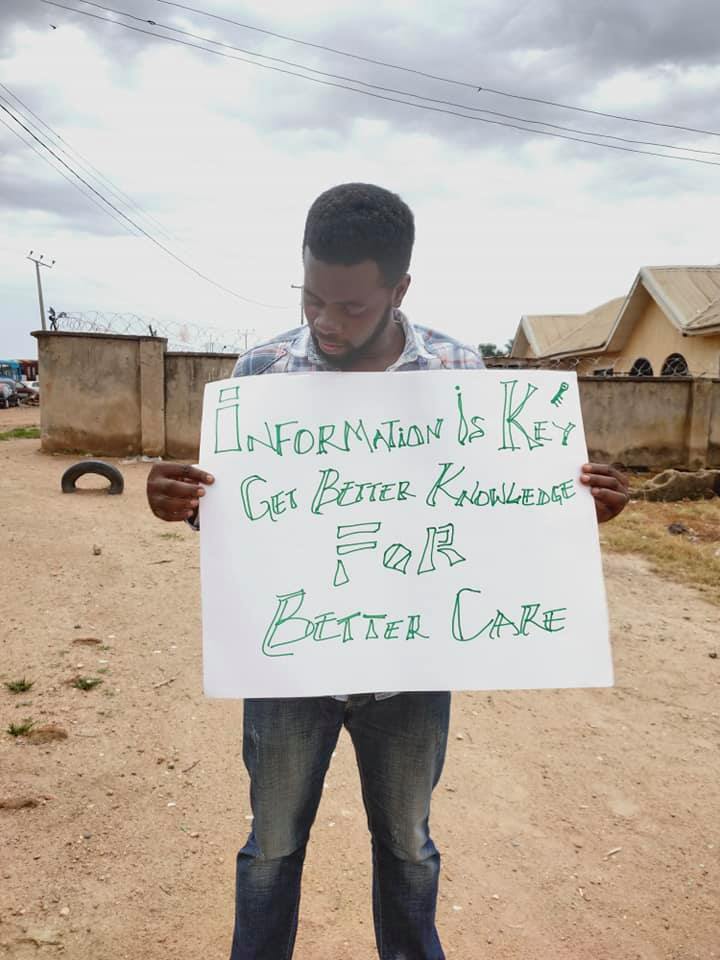 Information is Key
Get Better Knowledge
FoR
Better Care